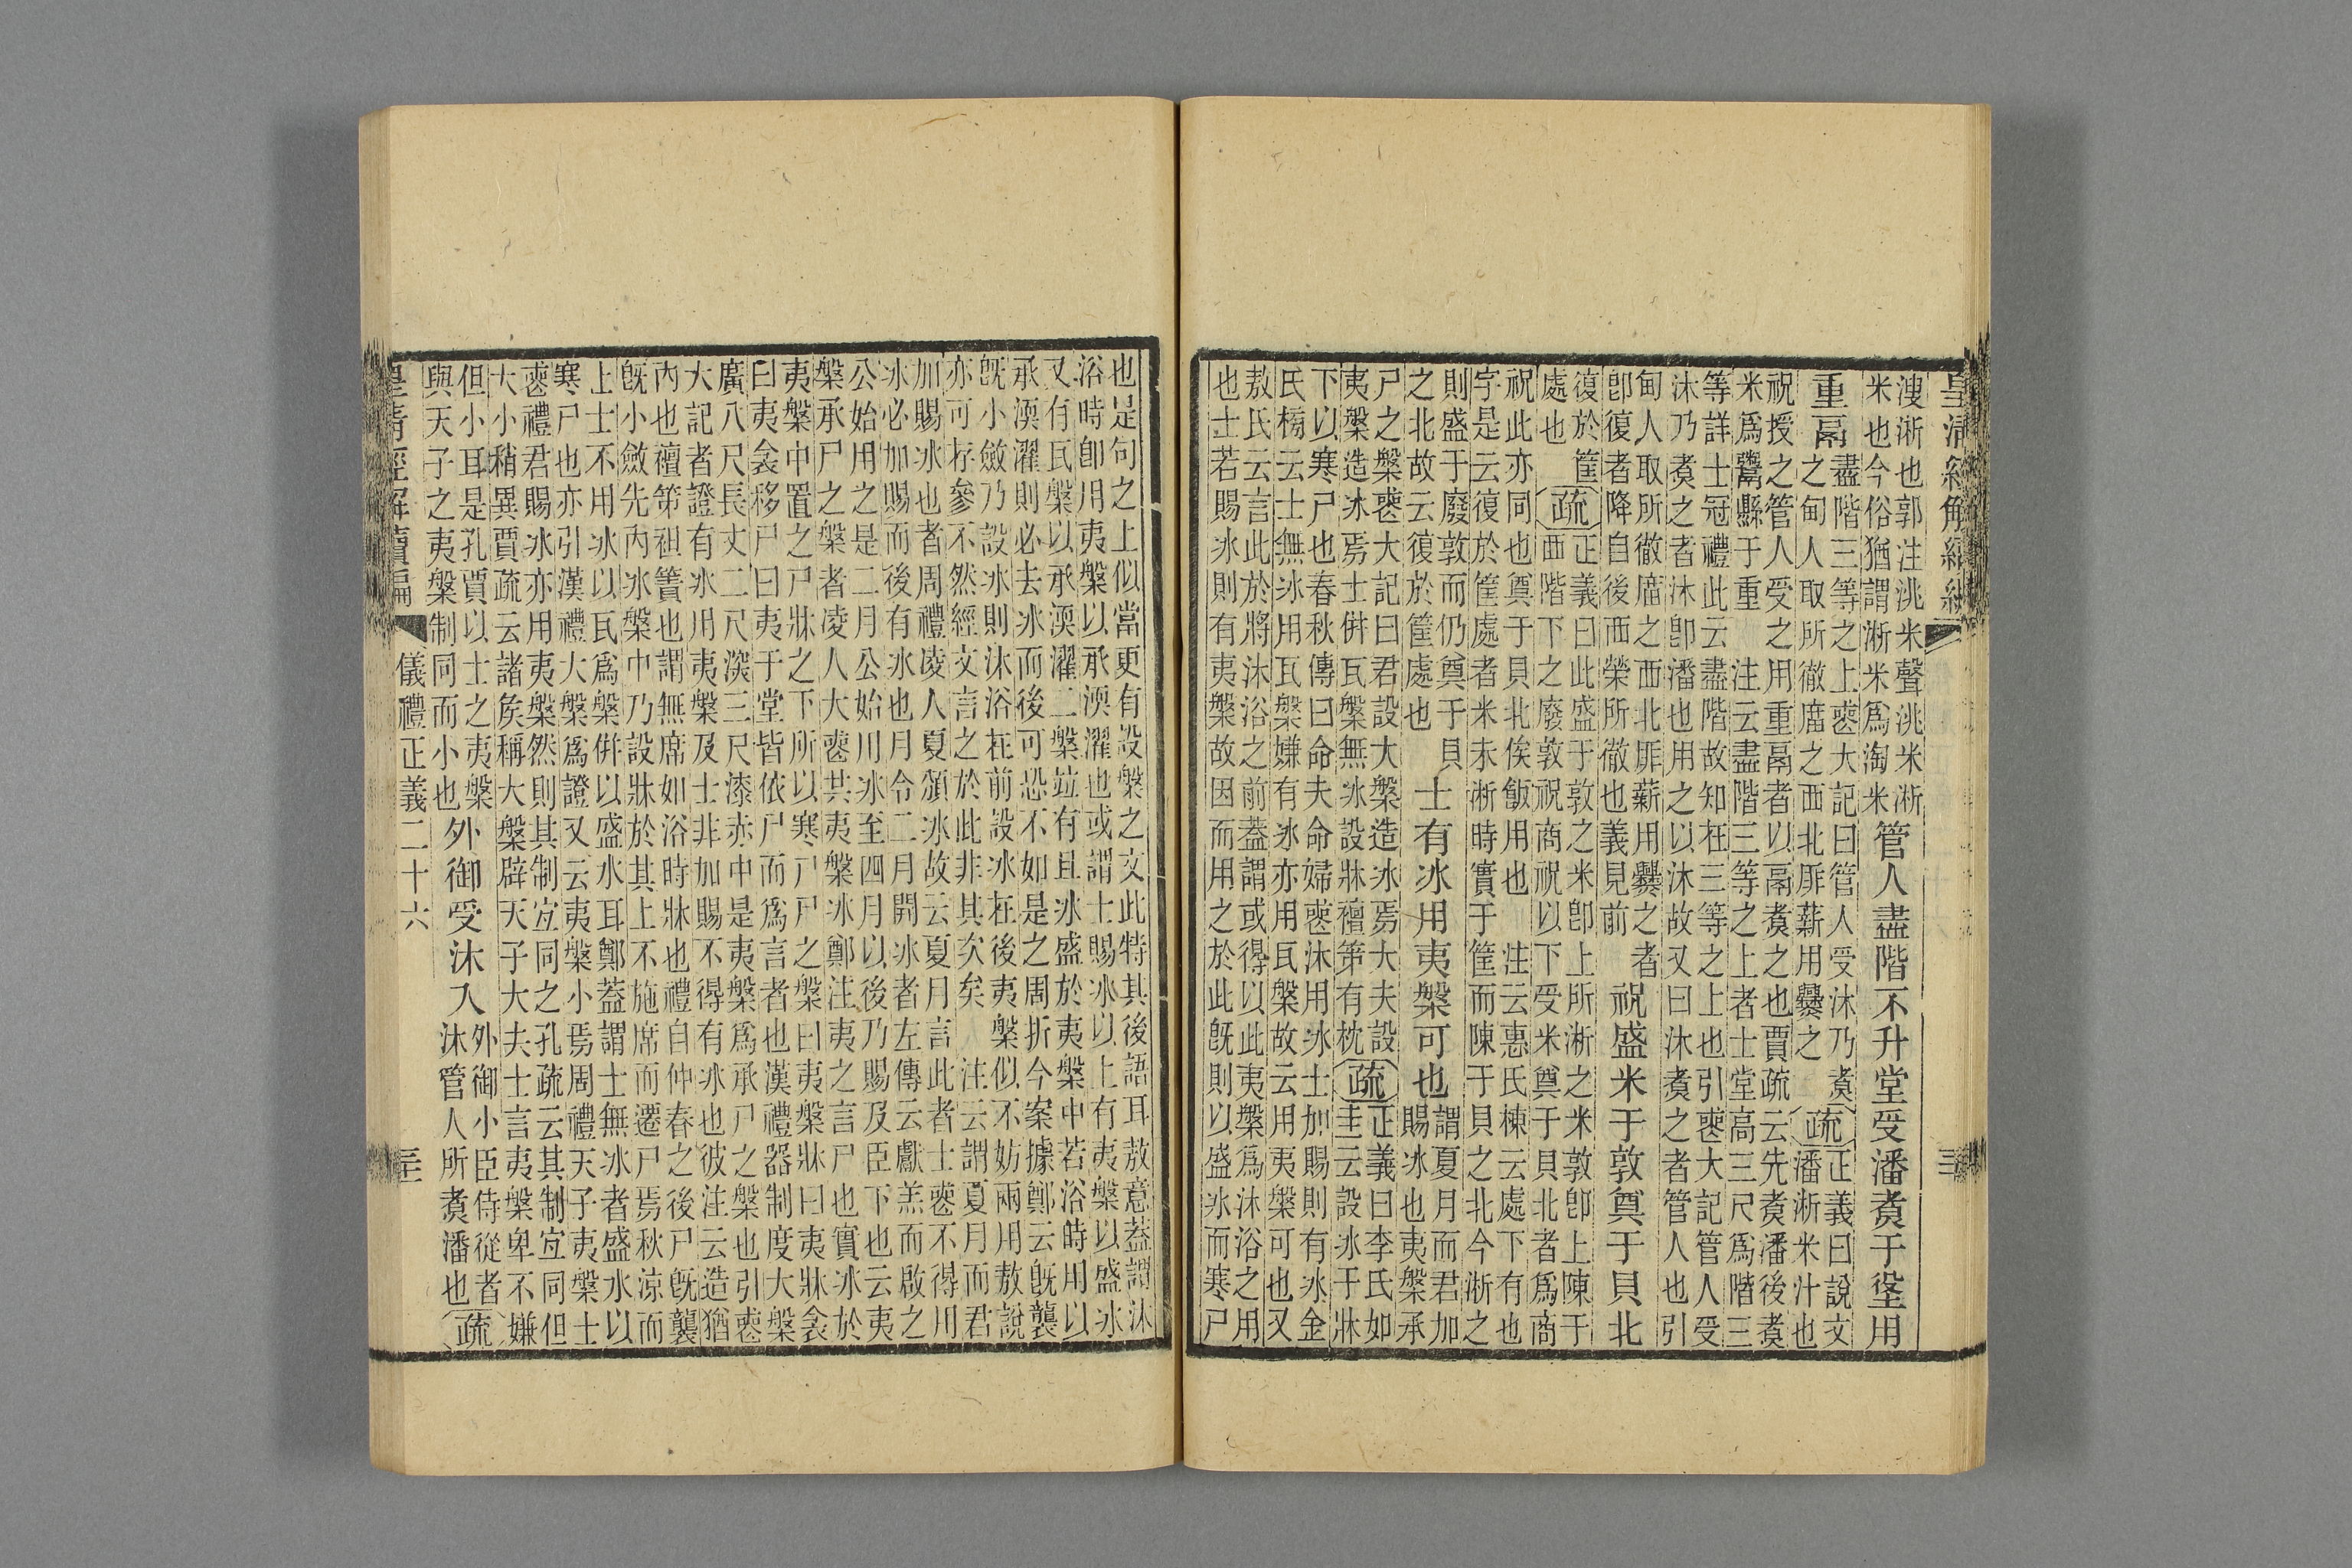 皇清經解續編
溲淅也郭注洮米聲洮米淅
米也今俗猶謂淅米爲淘米
管人盡階不升堂受潘煮于垼用
重鬲
盡階三等之上喪大記曰管人受沐乃煮
之甸人取所徹廟之西北厞薪用爨之
疏
正義曰說文
潘淅米汁也
祝授之管人受之用重鬲者以鬲煮之也賈疏云先煮潘後煮
米爲鬻縣于重　注云盡階三等之上者士堂高三尺爲階三
等詳士冠禮此云盡階故知在三等之上也引喪大記管人受
沐乃煮之者沐卽潘也用之以沐故又曰沐煮之者管人也引
甸人取所徹廟之西北厞薪用爨之者
卽復者降自後西榮所徹也義見前
祝盛米于敦奠于貝北
復於筐
處也
疏
正義曰此盛于敦之米卽上所淅之米敦卽上陳于
西階下之廢敦祝商祝以下受米奠于貝北者爲商
祝此亦同也奠于貝北俟飯用也　注云惠氏棟云處下有也
字是云復於筐處者米未淅時實于筐而陳于貝之北今淅之
則盛于廢敦而仍奠于貝
之北故云復於筐處也
士有冰用夷槃可也
謂夏月而君加
賜冰也夷槃承
尸之槃喪大記曰君設大槃造冰焉大夫設
夷槃造冰焉士倂瓦槃無冰設牀襢第有枕
疏
正義曰李氏如
圭云設冰于牀
下以寒尸也春秋傳曰命夫命婦喪沐用冰士加賜則有冰金
氏榜云士無冰用瓦槃嫌有冰亦用瓦槃故云用夷槃可也又
敖氏云言此於將沐浴之前蓋謂或得以此夷槃爲沐浴之用
也士若賜冰則有夷槃故因而用之於此旣則以盛冰而寒尸
也是句之上似當更有設槃之文此特其後語耳敖意蓋謂沐
浴時卽用夷槃以承渜濯也或謂士賜冰以上有夷槃以盛冰
又有瓦槃以承渜濯二槃竝有且冰盛於夷槃中若浴時用以
承渜濯則必去冰而後可恐不如是之周折今案據鄭云旣襲
旣小斂乃設冰則沐浴在前設冰在後夷槃似不妨兩用敖說
亦可存參不然經文言之於此非其次矣　注云謂夏月而君
加賜冰也者周禮凌人夏頒冰故云夏月言此者士喪不得用
冰必加賜而後有冰也月令二月開冰者左傳云獻羔而啟之
公始用之是二月公始用冰至四月以後乃賜及臣下也云夷
槃承尸之槃者凌人大喪共夷槃冰鄭注夷之言尸也實冰於
夷槃中置之尸牀之下所以寒尸尸之槃曰夷槃牀曰夷牀衾
曰夷衾移尸曰夷于堂皆依尸而爲言者也漢禮器制度大槃
廣八尺長丈二尺深三尺漆赤中是夷槃爲承尸之槃也引喪
大記者證有冰用夷槃及士非加賜不得有冰也彼注云造猶
內也襢第袒簀也謂無席如浴時牀也禮自仲春之後尸旣襲
旣小斂先內冰槃中乃設牀於其上不施席而遷尸焉秋涼而
上士不用冰以瓦爲槃倂以盛水耳鄭蓋謂士無冰者盛水以
寒尸也亦引漢禮大槃爲證又云夷槃小焉周禮天子夷槃士
喪禮君賜冰亦用夷槃然則其制宜同之孔疏云其制宜同但
大小稍異賈疏云諸侯稱大槃辟天子大夫士言夷槃卑不嫌
但小耳是孔賈以士之夷槃
與天子之夷槃制同而小也
外御受沐入
外御小臣侍從者
沐管人所煮潘也
疏
皇清經解續編
儀禮正義二十六